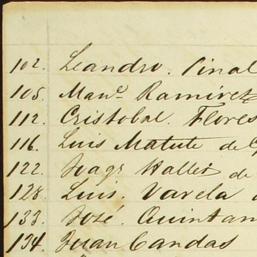 102. Leandro. Pinal
105. Man.º Ramirez
112. Cristobal Flores
116. Luis Matute de
122. de
128. Luis. Varela
133. José. Quintan
134. Juan Candas